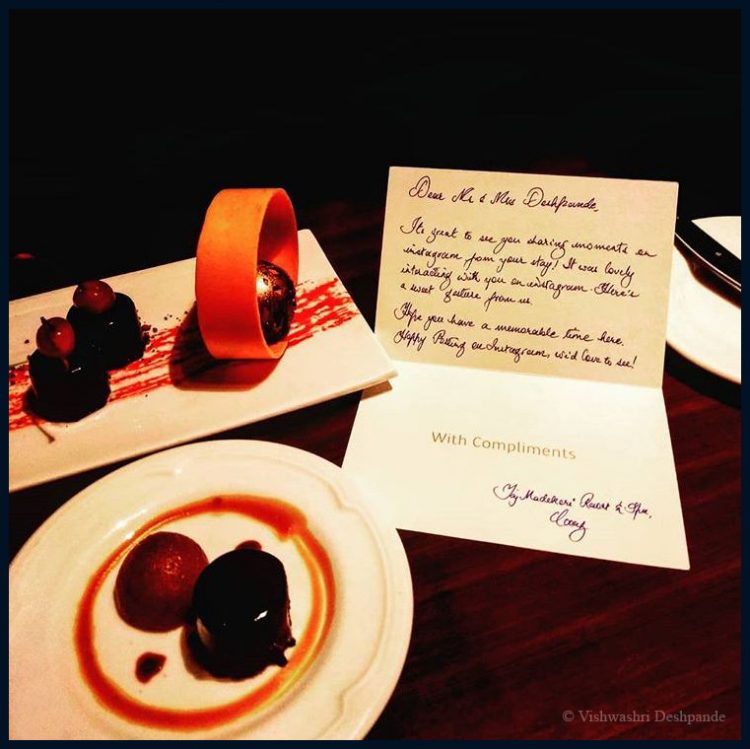 Dear Mr & Mrs Deshpande,
It's great to see you sharing moments on
instagram from your stay! It was lovely
interacting with you on instagram. Here's
a sweet gesture from us.
Hope you have a memorable time here.
Happy Posting on Instagram, we'd love to see!
With Compliments
Taj Madikeri Resort & Spa,
Coorg
© Vishwashri Deshpande